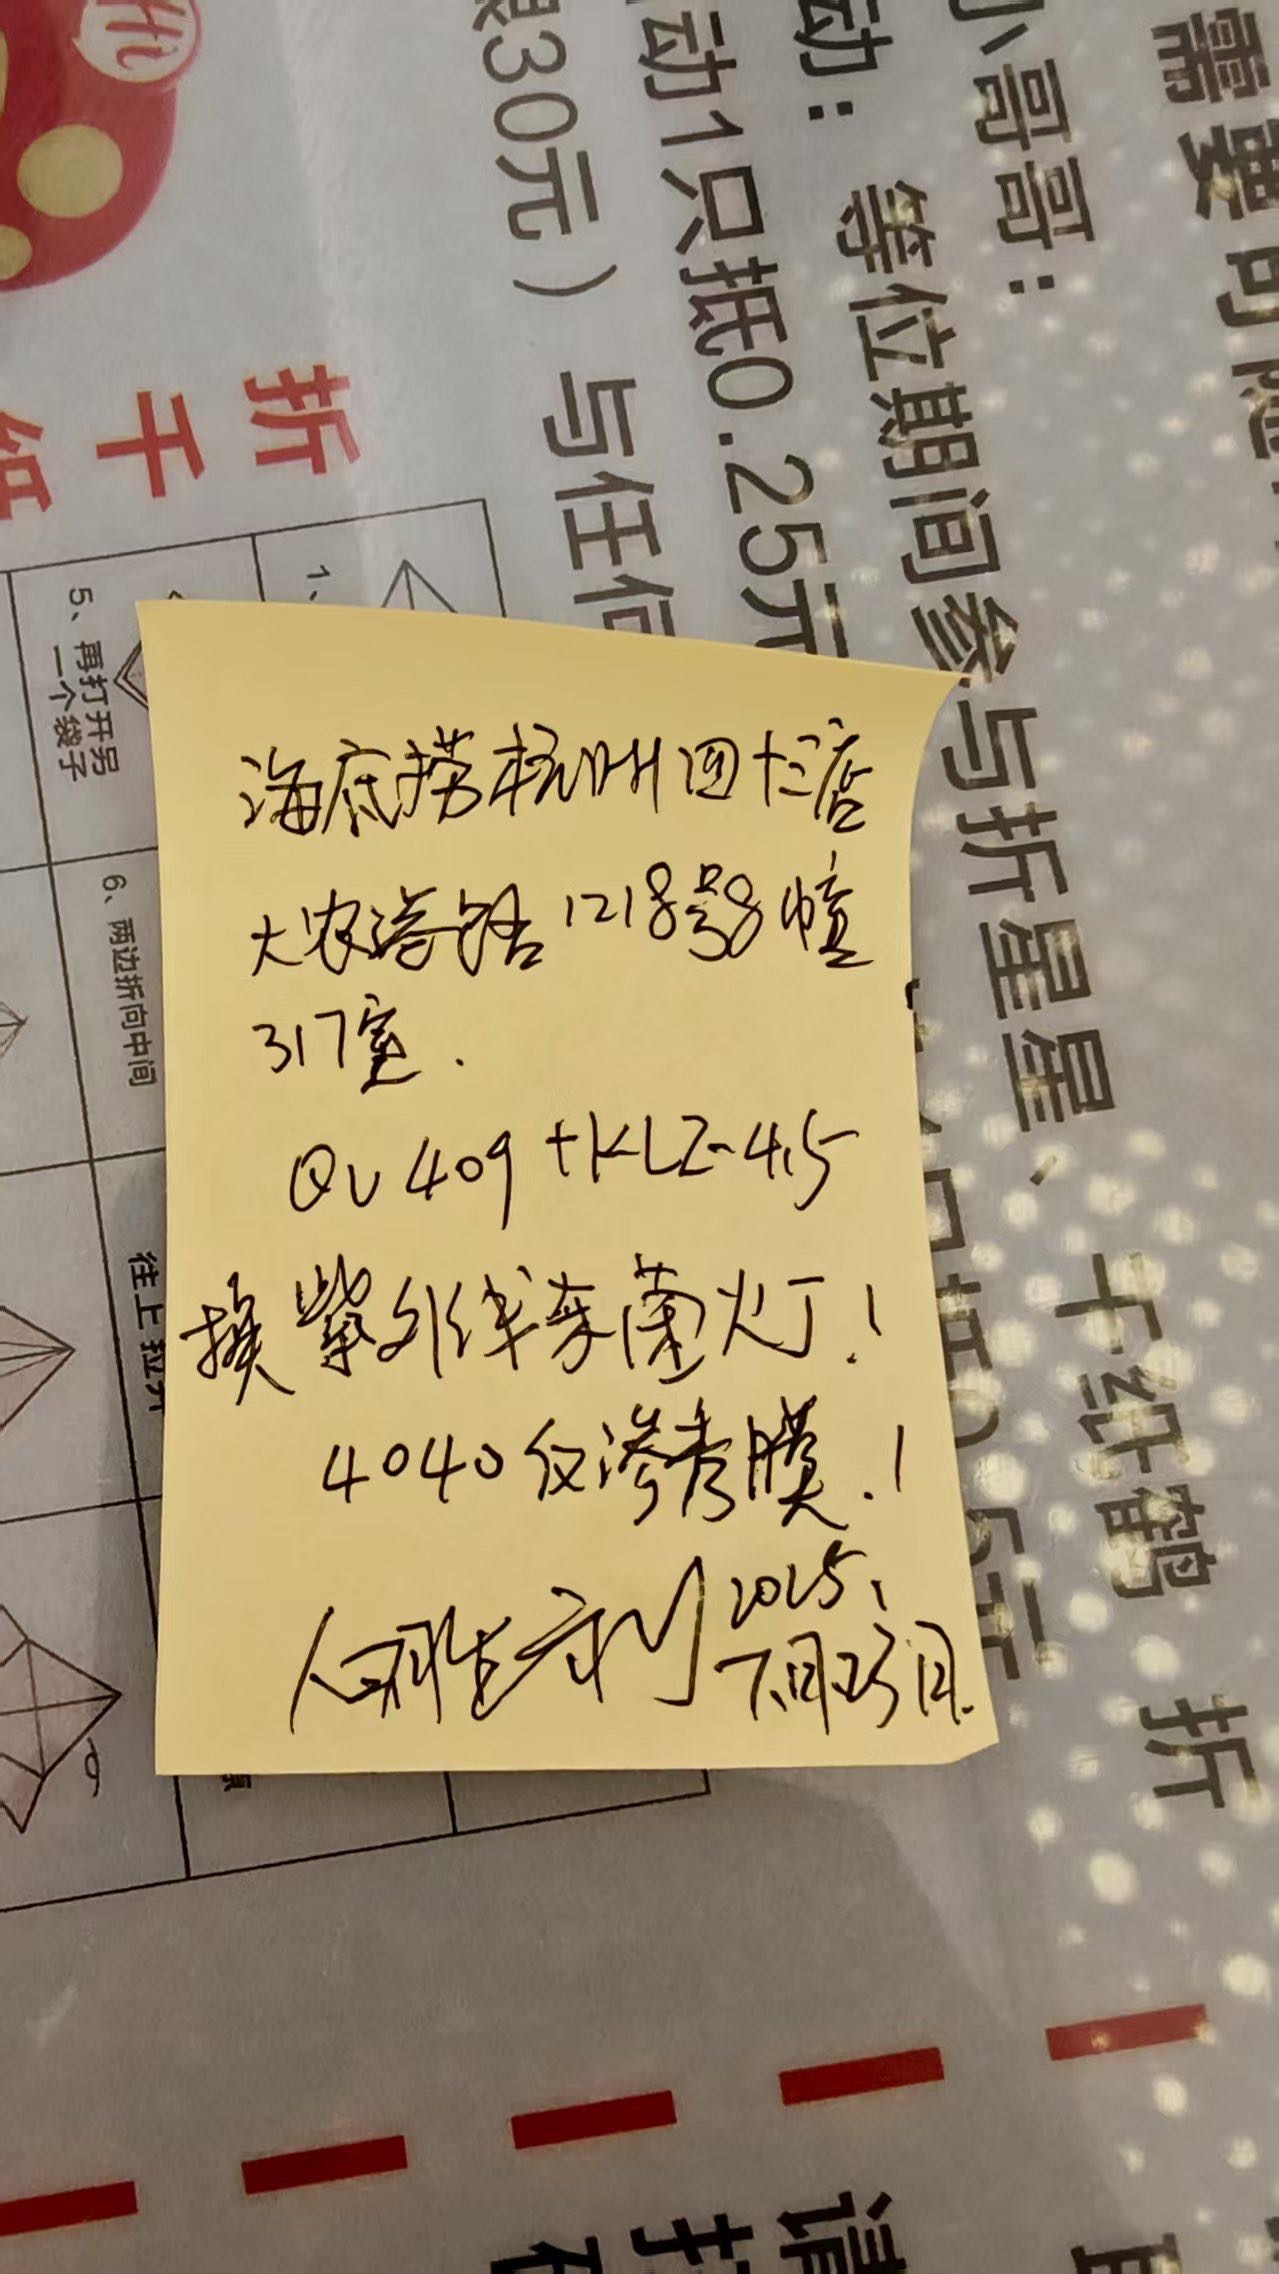 海底捞杭州四十三店
大农港路1218号8幢
317室.
QV 409 + KLZ-4.5
换紫外线杀菌灯!
4040反渗透膜.!
2025.
7月23日.
限30元）与任
动1只抵0.25元
动：等位期间参与折星星、千纸鹤 折
小哥哥：
需要
折
千
纸
1、
5、再打开另
一个袋子
6、两边折向中间
往上拉开
请